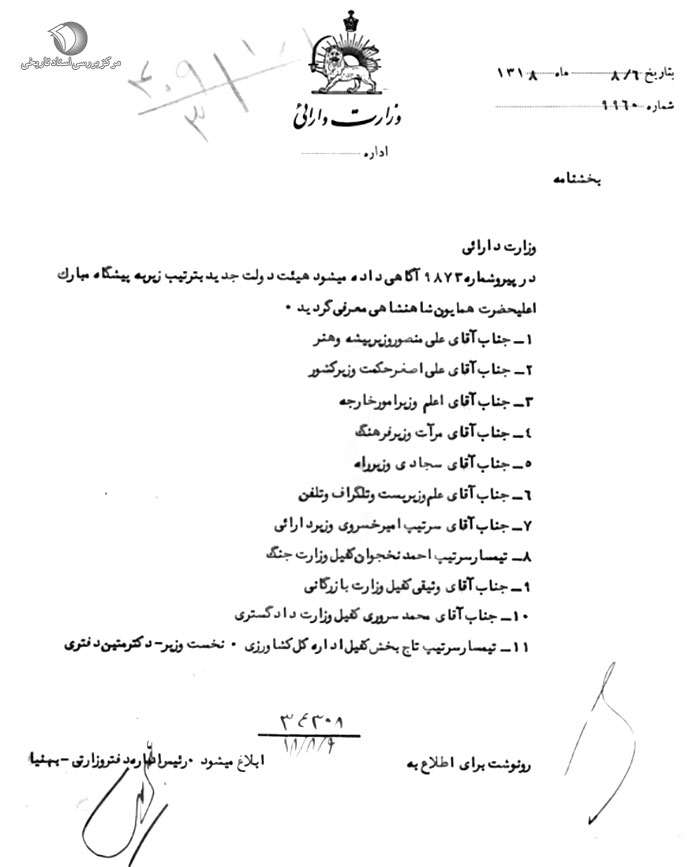 مرکز بررسی اسناد تاریخی
۴۰۹
۳
وزارت دارائی
اداره
بتاریخ ۸/٦ ماه ۱۳۱۸
شماره ۹۹٦۰
بخشنامه
وزارت دارائی
در پیرو شماره ۹۸۷۳ آگاهی داده میشود هیئت دولت جدید بترتیب زیر به پیشگاه مبارك
اعلیحضرت همایون شاهنشاهی معرفی گردید ۰
۱ــ جناب آقای علی منصور وزیر پیشه وهنر
۲ــ جناب آقای علی اصغر حکمت وزیر کشور
۳ــ جناب آقای اعلم وزیر امور خارجه
٤ــ جناب آقای مرآت وزیر فرهنگ
۵ــ جناب آقای سجادی وزیر راه
٦ــ جناب آقای علم وزیر پست وتلگراف وتلفن
۷ــ جناب آقای سرتیپ امیر خسروی وزیر دارائی
۸ــ تیمسار سرتیپ احمد نخجوان کفیل وزارت جنگ
۹ــ جناب آقای وثیقی کفیل وزارت بازرگانی
۱۰ــ جناب آقای محمد سروری کفیل وزارت دادگستری
۱۱ــ تیمسار سرتیپ تاج بخش کفیل اداره کل کشاورزی ۰ نخست وزیر – دکتر متین دفتری
۳٤۳۰۸
۱۸/۸/۹
رونوشت برای اطلاع به ابلاغ میشود ۰ رئیس اداره دفتر وزارتی – بهنیا